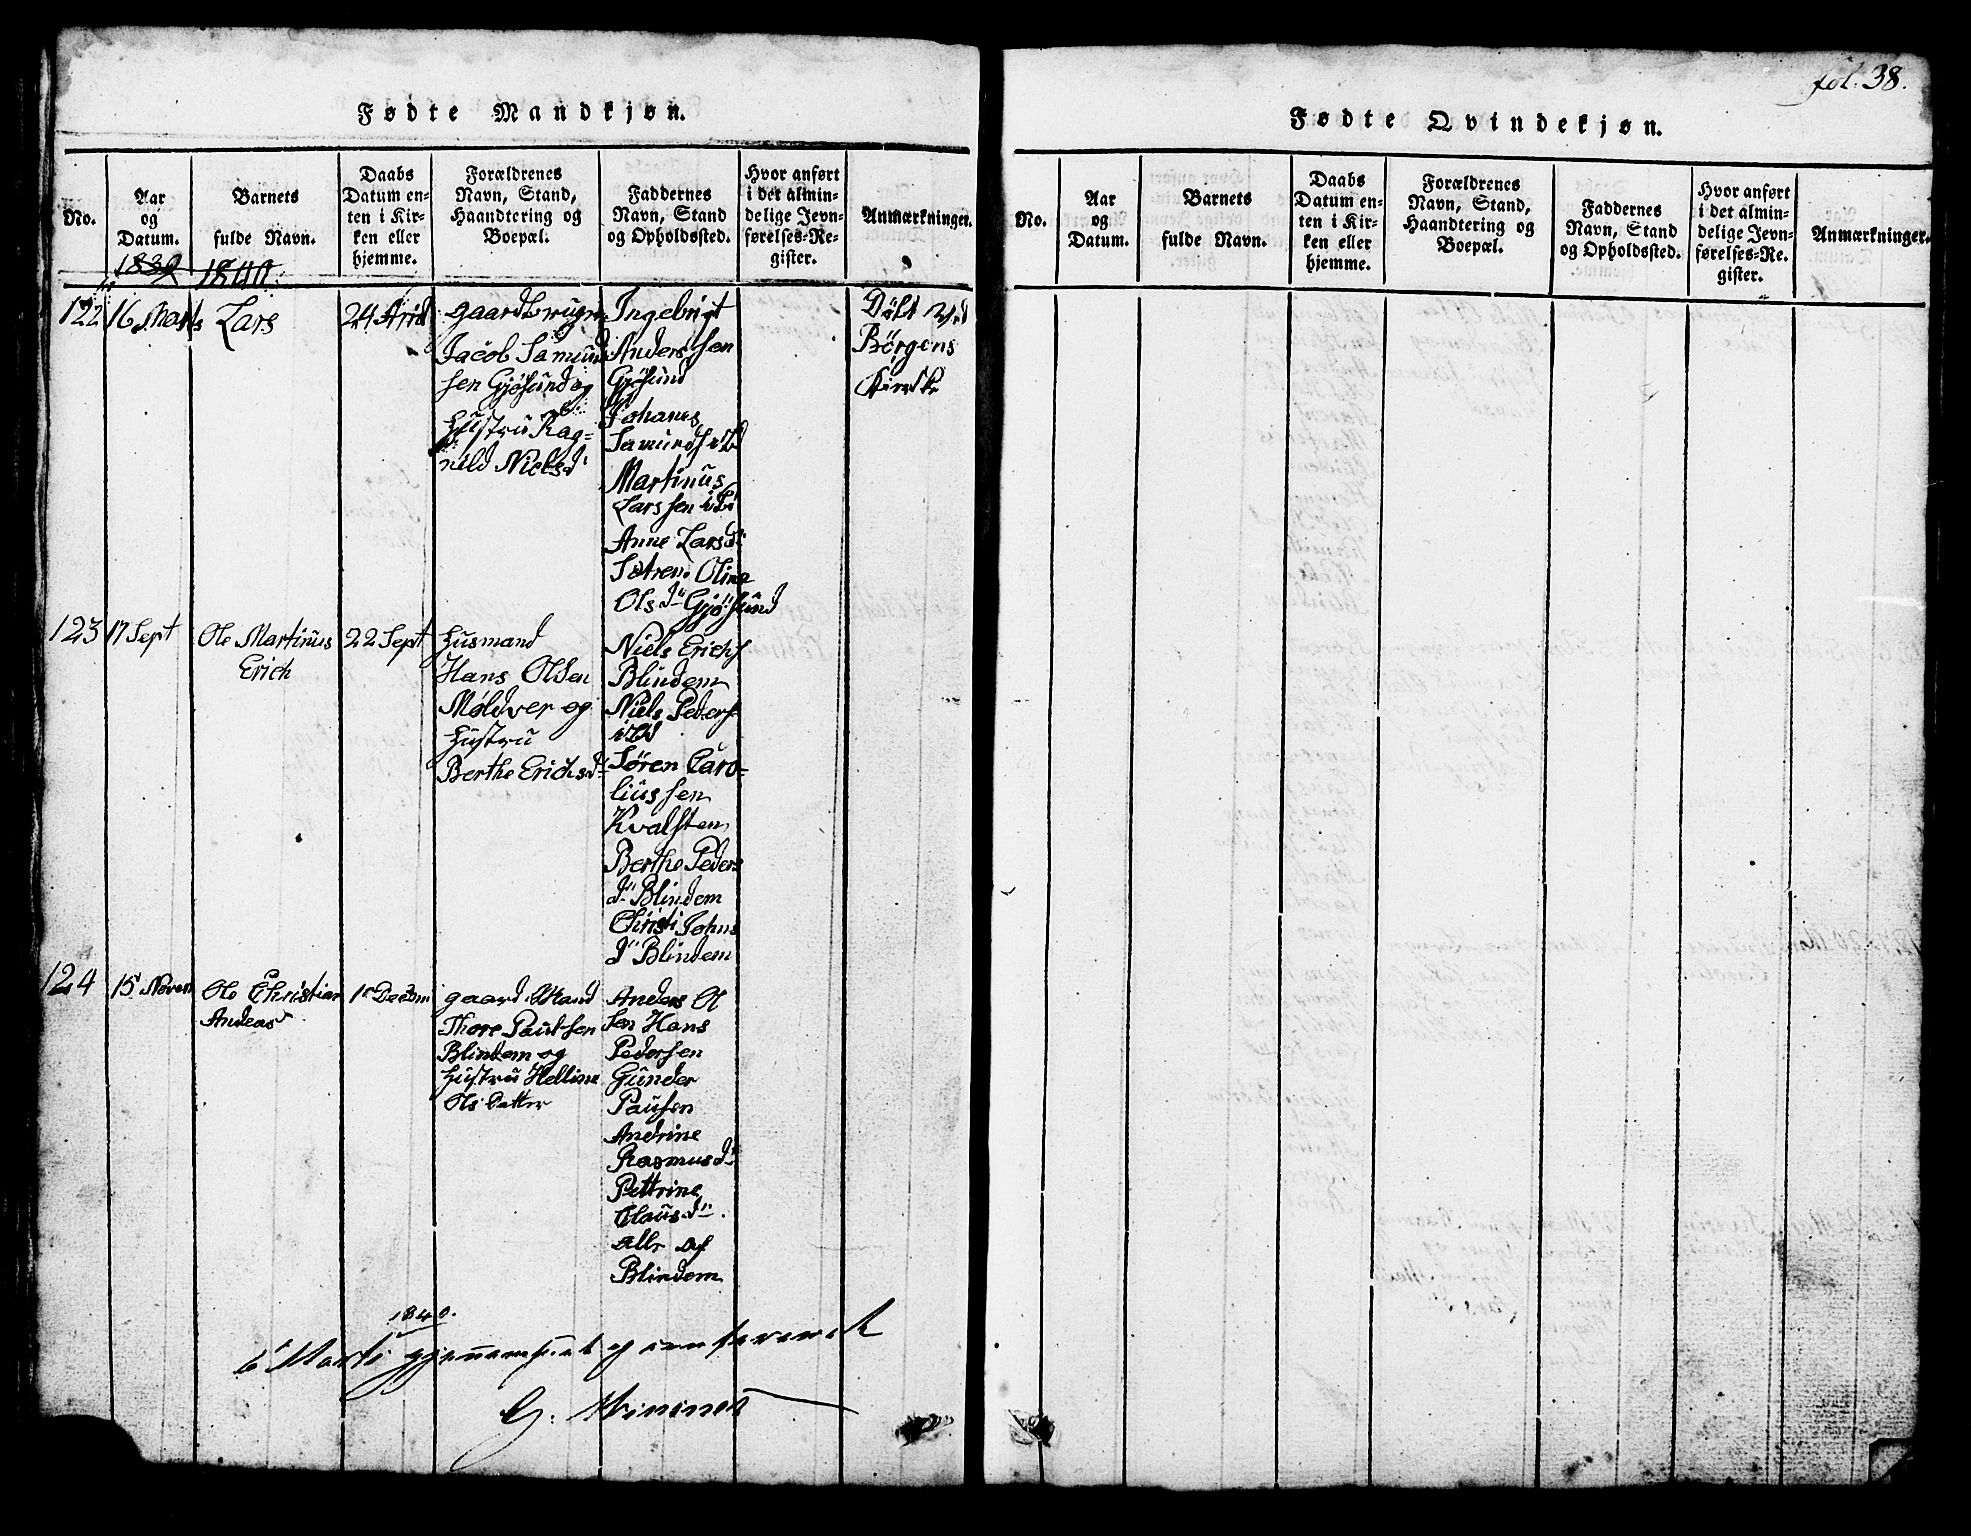 fol. 38.
Fødte Mandkjøn.
No.
Aar
og
Datum.
Barnets
fulde Navn.
Daabs
Datum en-
ten i Kir-
ken eller
hjemme.
Forældrenes
Navn, Stand,
Haandtering og
Boepæl.
Faddernes
Navn, Stand
og Opholdssted.
Hvor anført
i det almin-
delige Jevn-
førelses-Re-
gister.
Anmærkninger.
1839
1840
122
16 Marts
Lars
24
gaardbrugr
Jacob Samund
sen Gjøsund og
Hustru Rag-
nild Nielsd
Ingebrigt
Anderssen
Gjøsund
Johanes
Samundsen
Martinus
Larssen
Anne Larsd
Sætren. Oline
Olsd Gjøsund
Døbt ved
Børgens
Kirke
123
17 Sept
Ole Martinus
Erich
22 Sept
Husmand
Hans Olsen
Møldver og
Hustru
Berthe Erichsd
Niels Erichs
Blindem
Niels Peders
ibd
Søren Caro-
liussen
Kvalsten
Berthe Peders
d Blindem
Christi Johns
d Blindem
124
15 Novem
Ole Christian
Andeas
1 Decbm
gaard Mand
Thore Paulsen
Blindem og
Hustru Helline
Ols Datter
Anders Ol
sen Hans
Pedersen
Gunder
Pausen
Andrine
Rasmusd
Pettrine
Clausd
alle af
Blindem
1840.
6 Marts gjennemseet og
Fødte Qvindekjøn.
No.
Aar
og
Datum.
Barnets
fulde Navn.
Daabs
Datum en-
ten i Kir-
ken eller
hjemme.
Forældrenes
Navn, Stand,
Haandtering og
Boepæl.
Faddernes
Navn, Stand
og Opholdssted.
Hvor anført
i det almin-
delige Jevn-
førelses-Re-
gister.
Anmærkninger.